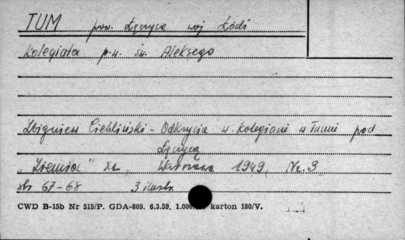 TUM pow. Łęczyca woj Łódź
Kolegiata p.w. św. Aleksego
Zbigniew Ciekliński - Odkrycia w kolegiacie w Tumie pod
Łęczycą
"Ziemia" Warszawa 1949, Nr. 3
str 67-68 3 ilustr.
CWD B-15b Nr 515/P. GDA-809. 6.3.59. 1.000 karton 180/V.